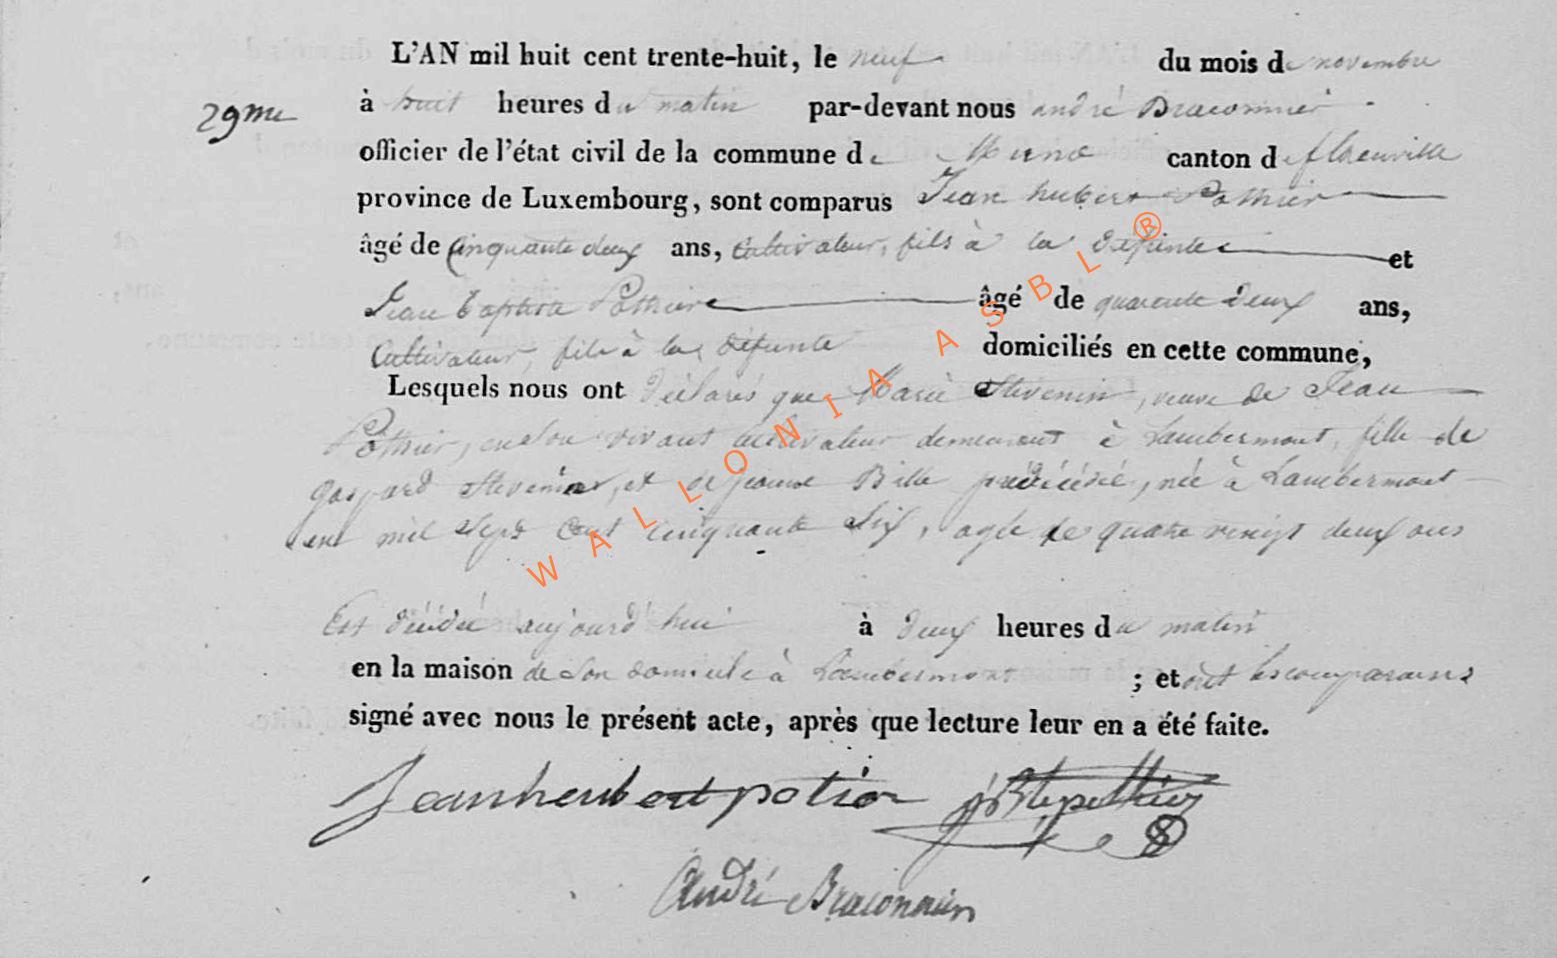 L'AN mil huit cent trente-huit, le neuf du mois de novembre
29me
à huit heures du matin par-devant nous andré Braconnier
officier de l'état civil de la commune de Muno canton de florenville
province de Luxembourg, sont comparus Jean hubert Pothier
âgé de cinquante deux ans, Cultivateur, fils à la défunte et
Jean baptiste Pothier âgé de quarante deux ans,
Cultivateur, fils à la défunte domiciliés en cette commune,
Lesquels nous ont déclarés que Marie Stevenin, veuve de Jean
Pothier, en son vivant cultivateur demeurant à Lambermont, fille de
gaspard Stevenin, et de jeanne Bille prédécédé, née à Lambermont
en mil sept cent cinquante six, agée de quatre vingt deux ans
Est décédée aujourd'hui à deux heures du matin
en la maison de son domicile à Lambermont ; et ont les comparans
signé avec nous le présent acte, après que lecture leur en a été faite.
Jean heubert potier jBte pothier
andré Braconnier
WALLONIA ASBL®